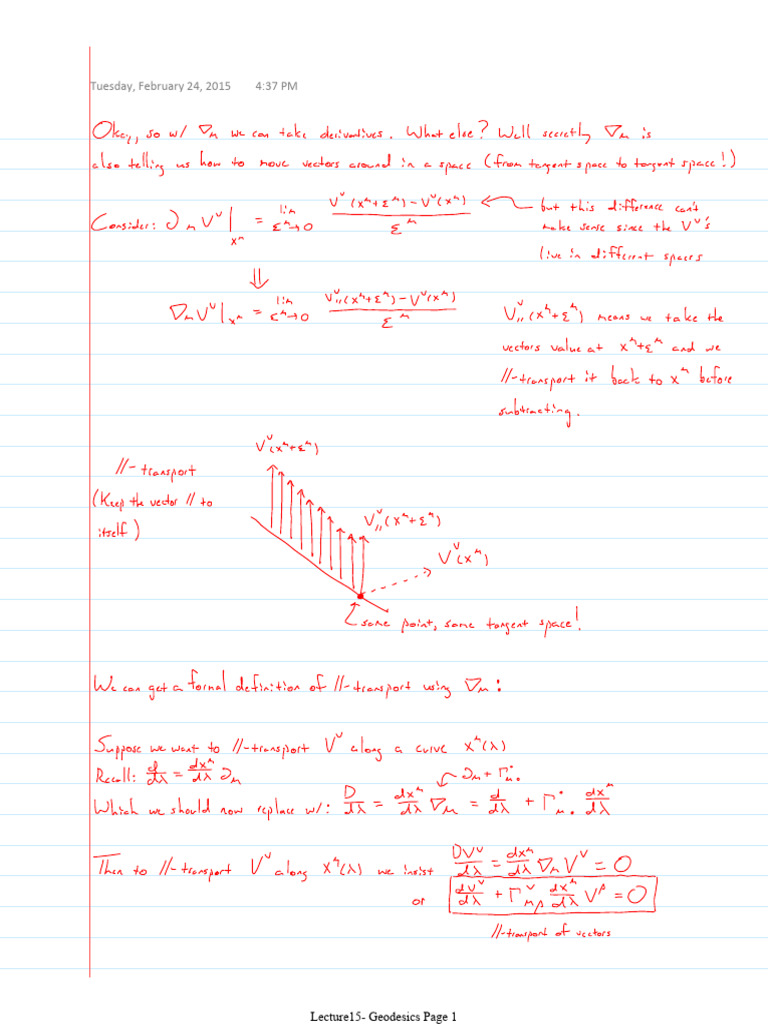 Tuesday, February 24, 2015 4:37 PM
Okay, so w/ ∇_μ we can take derivatives. What else? Well secretly ∇_μ is
also telling us how to move vectors around in a space (from tangent space to tangent space!)
Consider: ∂_μ V^ν|_{x^μ} = lim_{ε^μ→0} (V^ν(x^μ+ε^μ) − V^ν(x^μ)) / ε^μ
but this difference can't
make sense since the V^ν's
live in different spaces
⇓
∇_μ V^ν|_{x^μ} = lim_{ε^μ→0} (V^ν_{//}(x^μ+ε^μ) − V^ν(x^μ)) / ε^μ
V^ν_{//}(x^μ+ε^μ) means we take the
vectors value at x^μ+ε^μ and we
//-transport it back to x^μ before
subtracting.
V^ν(x^μ+ε^μ)
//-transport
(Keep the vector // to
itself)
V^ν_{//}(x^μ+ε^μ)
V^ν(x^μ)
same point, same tangent space!
We can get a formal definition of //-transport using ∇_μ:
Suppose we want to //-transport V^ν along a curve x^μ(λ)
Recall: d/dλ = dx^μ/dλ ∂_μ
∂_μ + Γ^•_{μ•}
Which we should now replace w/: D/dλ = dx^μ/dλ ∇_μ = d/dλ + Γ^•_{μ•} dx^μ/dλ
Then to //-transport V^ν along x^μ(λ) we insist DV^ν/dλ = dx^μ/dλ ∇_μ V^ν = 0
or dV^ν/dλ + Γ^ν_{μρ} dx^μ/dλ V^ρ = 0
//-transport of vectors
Lecture15- Geodesics Page 1